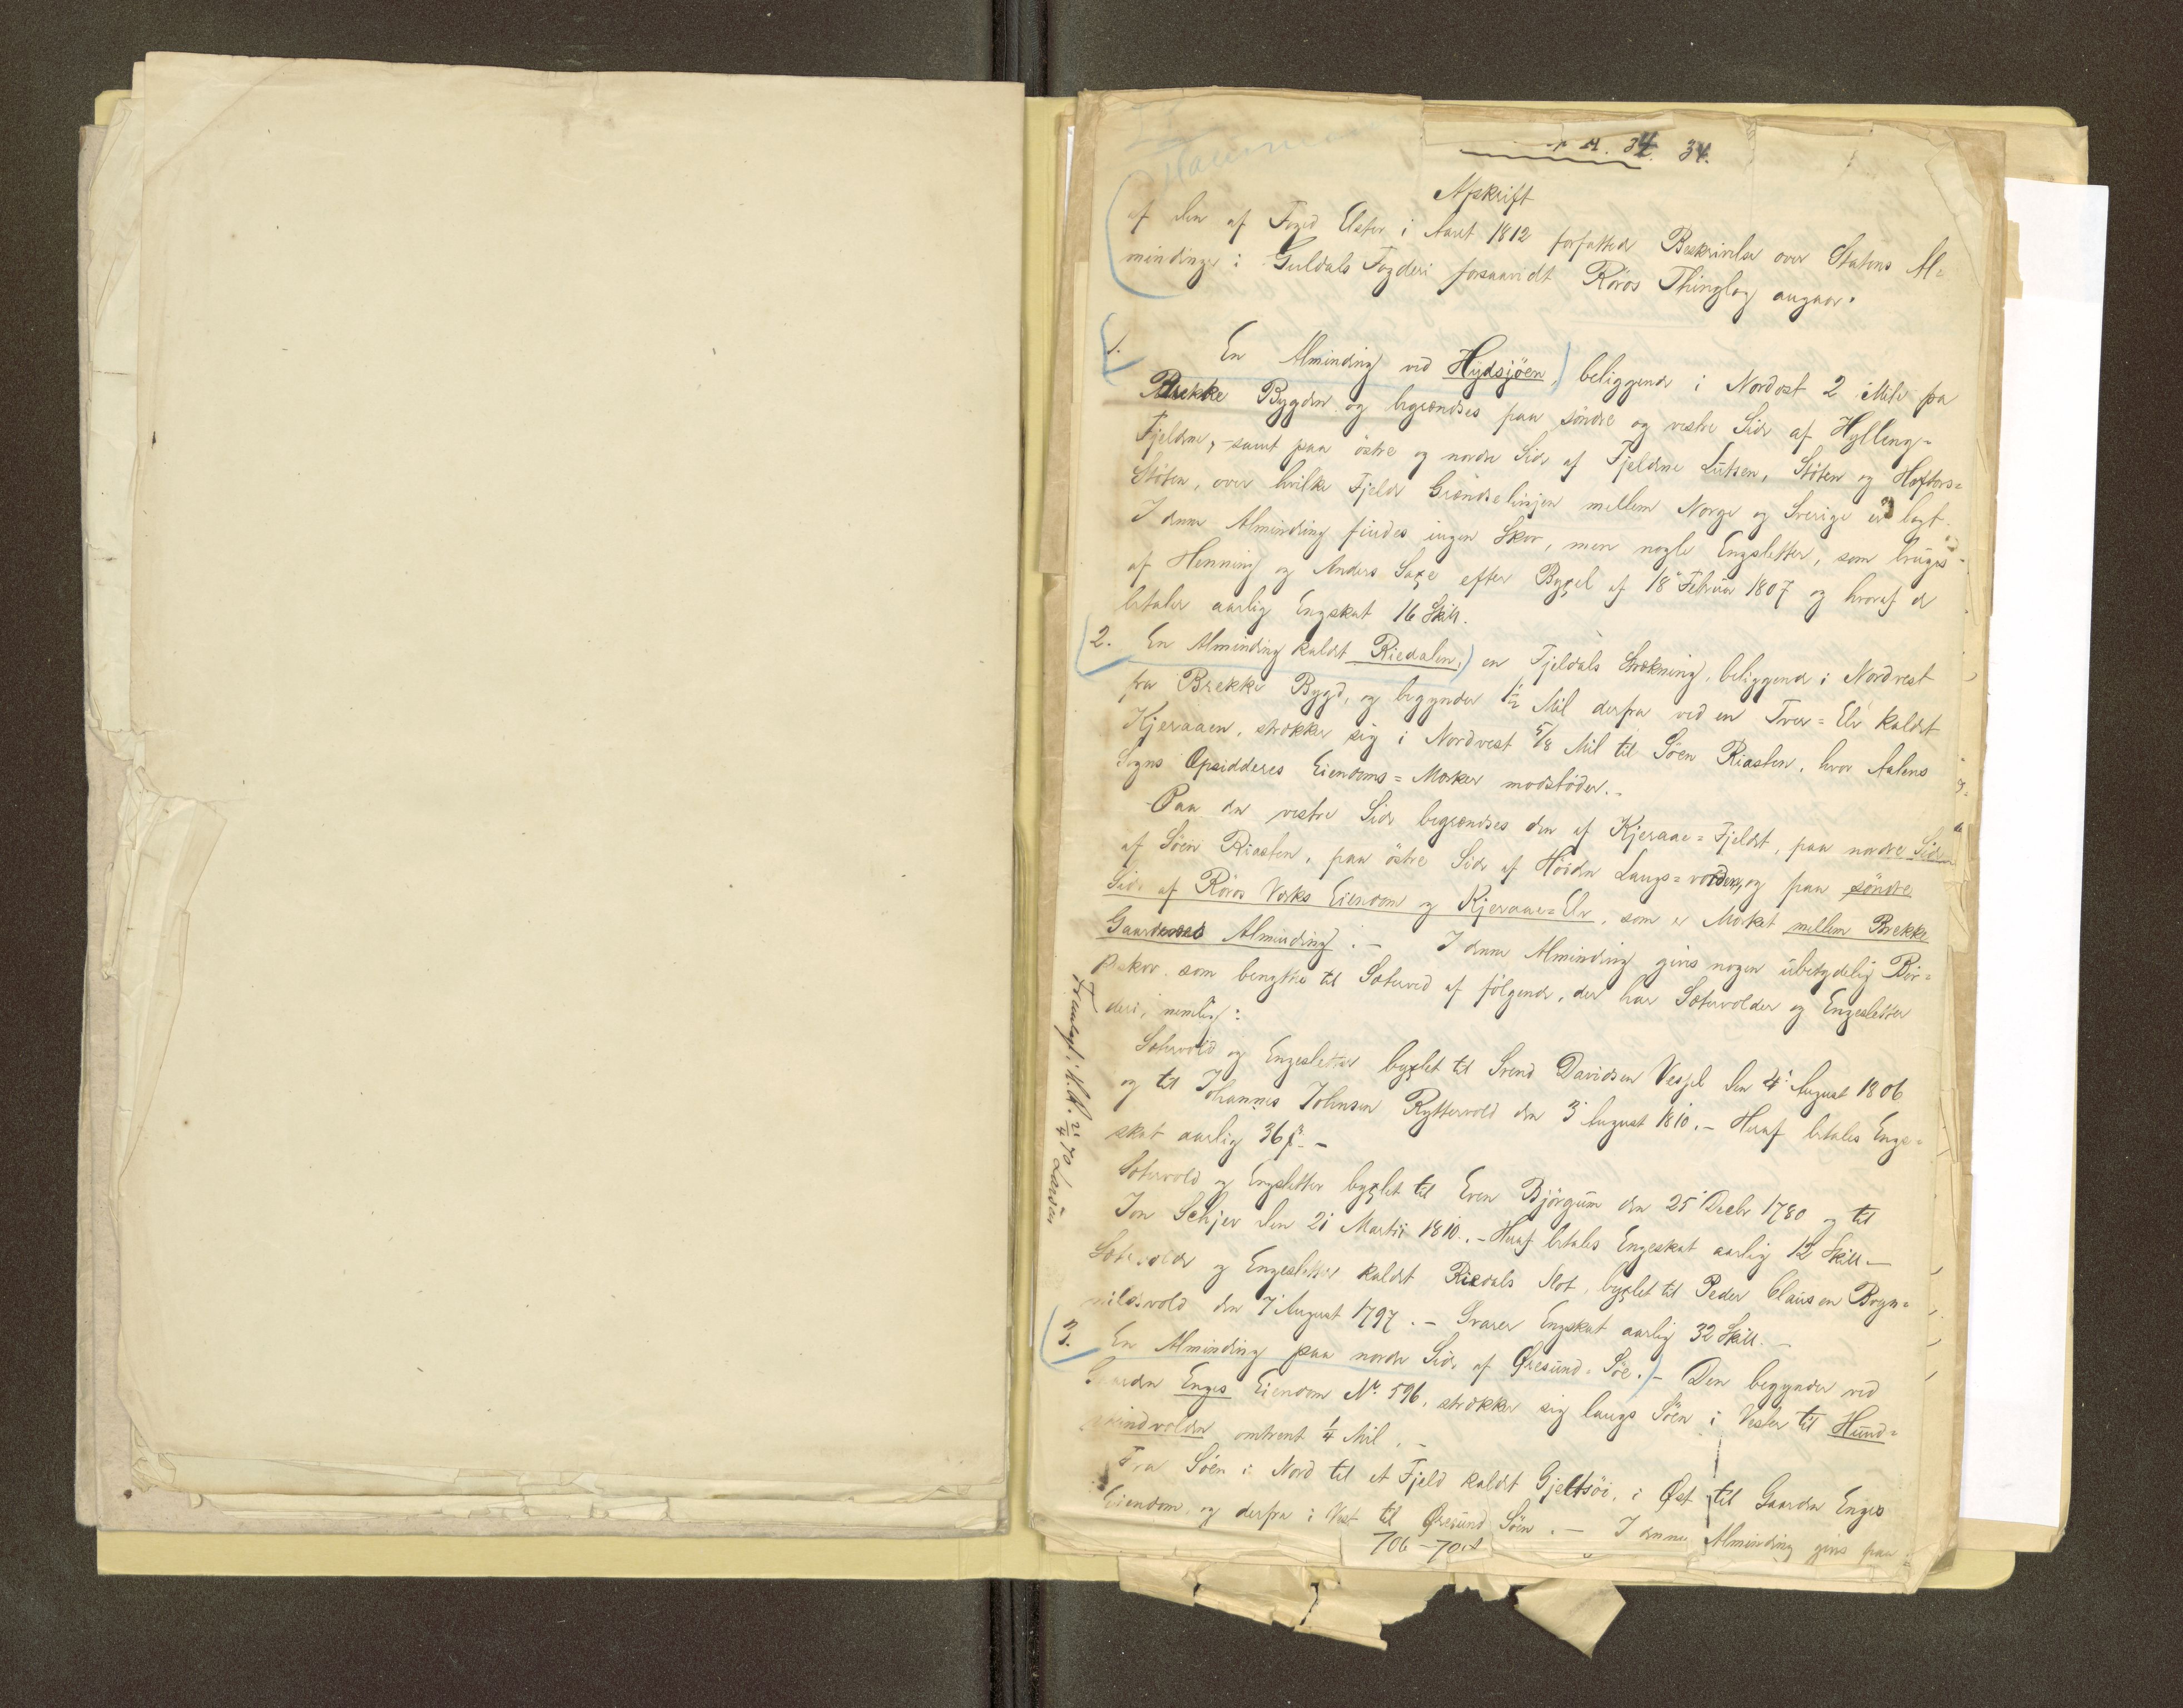 34. 34.
Afskrift
af den af Foged Elster i Aaret 1812 forfattede Beskrivelse over Statens Al=
mindinger i Guldals Fogderi forsaavidt Röros Thinglag angaar.
1. En Alminding ved Hydsjöen, beliggende i Nordost 2 Mile fra
Brekke Bygden og begrændses paa söndre og vestre Side af Hylling=
Fjeldene, samt paa östre og nordre Side af Fjeldene Lutsen, Stöten og Haftors=
Stöten, over hvilke Fjelde Grændselinjen mellem Norge og Sverige er lagt.
I denne Alminding findes ingen Skov, men nogle Engesletter, som bruges
af Henning og Anders Saxe efter Bygsel af 18 Februar 1807 og hvoraf de
betaler aarlig Engskat 16 Skill.
2. En Alminding kaldt Riedalen, en Fjeldals Strækning, beliggende i Nordvest
fra Brekke Bygd, og begynder 1/2 Mil derfra ved en Tver=Elv kaldet
Kjeraaen, strækker sig i Nordvest 5/8 Mil til Söen Riasten, hvor Aalens
Sogns Opsidderes Eiendoms=Marker modstöder.-
Paa den vestre Side begrændses den af Kjeraae=Fjeldet, paa nordre Siden
af Söen Riasten, paa östre Side af Höiden Langs=vorden, og paa söndre
Side af Röros Værks Eiendom og Kjeraae=Elv, som er Mærket mellem Brekke
Gaardenes Alminding.- I denne Alminding gives nogen ubetydelig Bir=
keskov som benyttes til Sæterved af fölgende, der har Sætervolder og Engesletter
deri, nemlig:
Sætervold og Engesletter byxlet til Svend Davidsen Vesjel den 4 August 1806
og til Johannes Johnsen Ryttervold den 3 August 1810.- Heraf betales Enge=
skat aarlig 36 ß.-
Sætervold og Engesletter byxlet til Even Björgum den 25 Decbr 1780 og til
Jon Schjev den 21 Martii 1810.- Heraf betales Engeskat aarlig 12 Skill.-
Sætervolde og Engesletter kaldet Riedals Slot, byxlet til Peder Clausen Bryn=
nildsvold den 7 August 1797.- Svarer Engskat aarlig 32 Skill.-
3. En Alminding paa nordre Side af Öresund=Söe.- Den begynder ved
Gaarden Enges Eiendom No. 596, strækker sig langs Söen i Vester til Hund=
skindvolden omtrent 1/4 Mil.-
Fra Söen i Nord til et Fjeld kaldet Gjeltsöi, i Öst til Gaarden Enges
Eiendom, og derfra i Vest til Öresund Söen.- I denne Alminding gives paa
706-70
Fremlagt i 21/4 70 Larsen